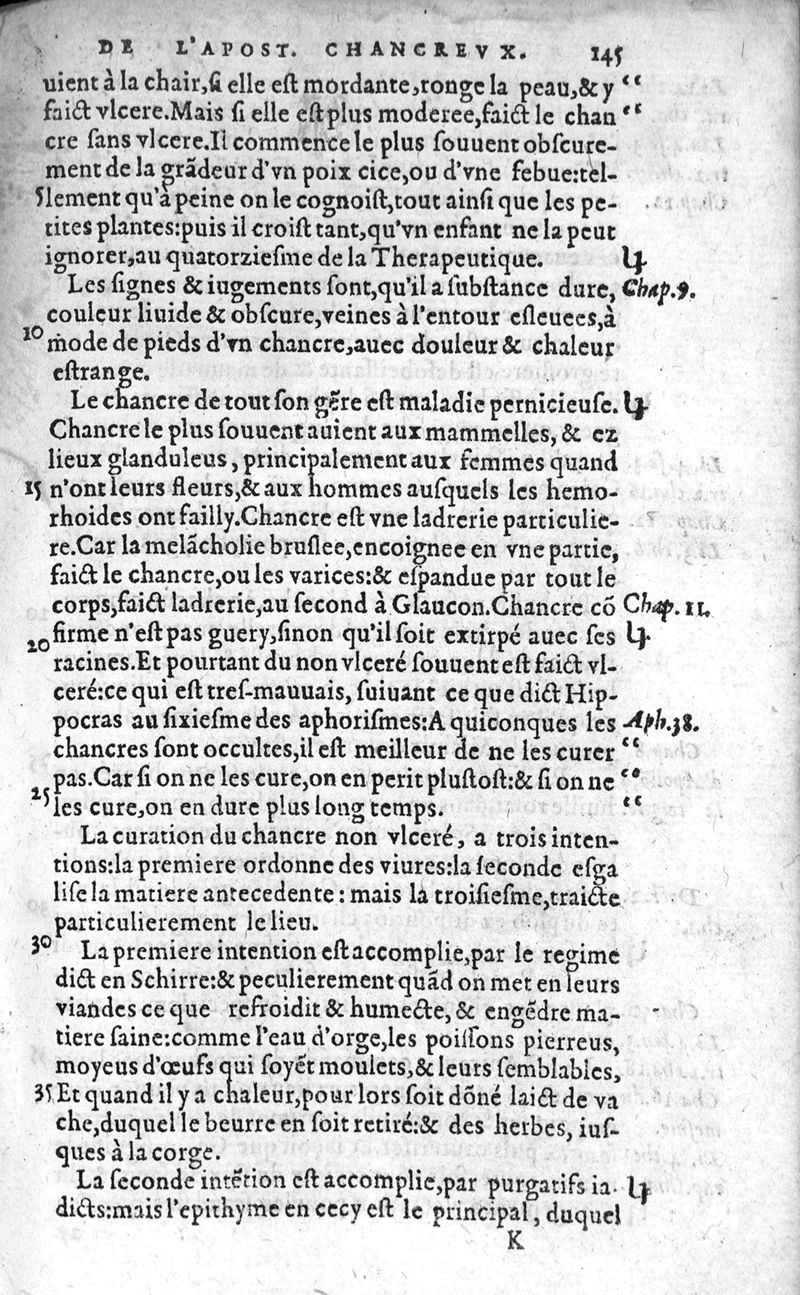 DE L'APOST. CHANCREVX. 145
uient à la chair,ſi elle eſt mordante,ronge la peau,& y “
faict vlcere.Mais ſi elle eſt plus moderee,faict le chan “
cre ſans vlcere.Il commence le plus ſouuent obſcure-
ment de la grãdeur d'vn poix cice,ou d'vne febue:tel-
5 lement qu'à peine on le cognoiſt,tout ainſi que les pe-
tites plantes:puis il croiſt tant,qu'vn enfant ne la peut
ignorer,au quatorzieſme de la Therapeutique.
Les ſignes & iugements ſont,qu'il a ſubſtance dure, Chap.9.
couleur liuide & obſcure,veines à l'entour eſleuees,à
10 mode de pieds d'vn chancre,auec douleur & chaleur
eſtrange.
Le chancre de tout ſon gẽre eſt maladie pernicieuſe.
Chancre le plus ſouuent auient aux mammelles, & ez
lieux glanduleus, principalement aux femmes quand
15 n'ont leurs fleurs,& aux hommes auſquels les hemo-
rhoides ont failly.Chancre eſt vne ladrerie particulie-
re.Car la melãcholie bruſlee,encoignee en vne partie,
faict le chancre,ou les varices:& eſpandue par tout le
corps,faict ladrerie,au ſecond à Glaucon.Chancre cõ Chap. 11.
20 firme n'eſt pas guery,ſinon qu'il ſoit extirpé auec ſes
racines.Et pourtant du non vlceré ſouuent eſt faict vl-
ceré:ce qui eſt treſ-mauuais, ſuiuant ce que dict Hip-
pocras au ſixieſme des aphoriſmes:A quiconques les Aph.38.
chancres ſont occultes,il eſt meilleur de ne les curer “
25 pas.Car ſi on ne les cure,on en perit pluſtoſt:& ſi on ne “
les cure,on en dure plus long temps. “
La curation du chancre non vlceré, a trois inten-
tions:la premiere ordonne des viures:la ſeconde eſga
liſe la matiere antecedente : mais la troiſieſme,traicte
particulierement le lieu.
30 La premiere intention eſt accomplie,par le regime
dict en Schirre:& peculierement quãd on met en leurs
viandes ce que refroidit & humecte, & engẽdre ma-
tiere ſaine:comme l'eau d'orge,les poiſſons pierreus,
moyeus d'œufs qui ſoyẽt moulets,& leurs ſemblables,
35 Et quand il y a chaleur,pour lors ſoit dõné laict de va
che,duquel le beurre en ſoit retiré:& des herbes, iuſ-
ques à la corge.
La ſeconde intẽtion eſt accomplie,par purgatifs ia-
dicts:mais l'epithyme en cecy eſt le principal, duquel
K